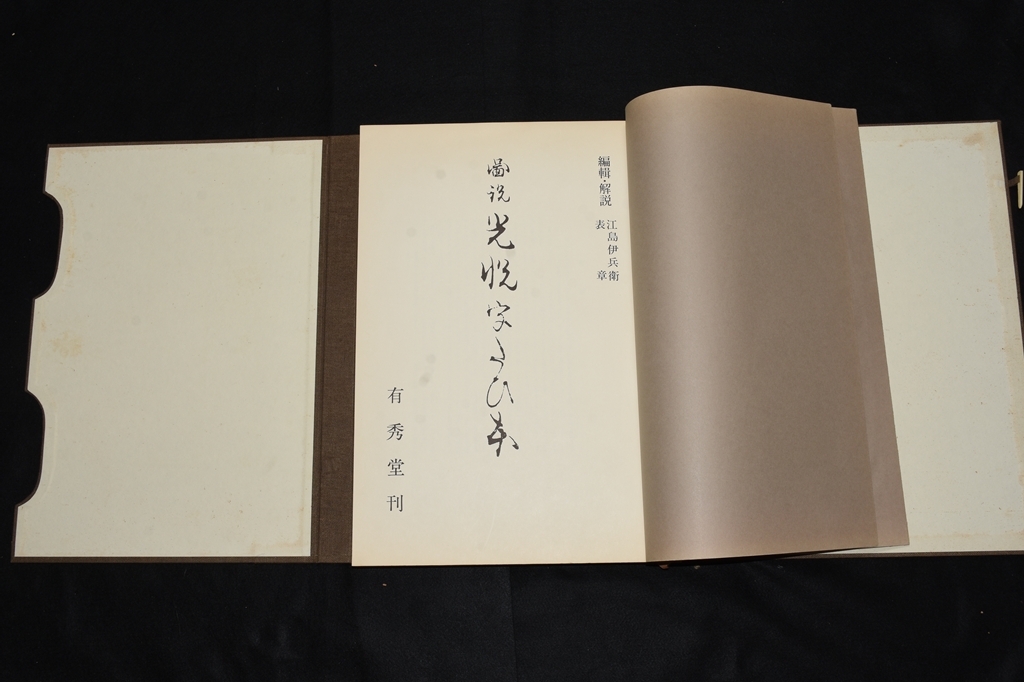 編輯・解説 江島伊兵衛
表章
圖説 光悦宇たひ本
有秀堂刊